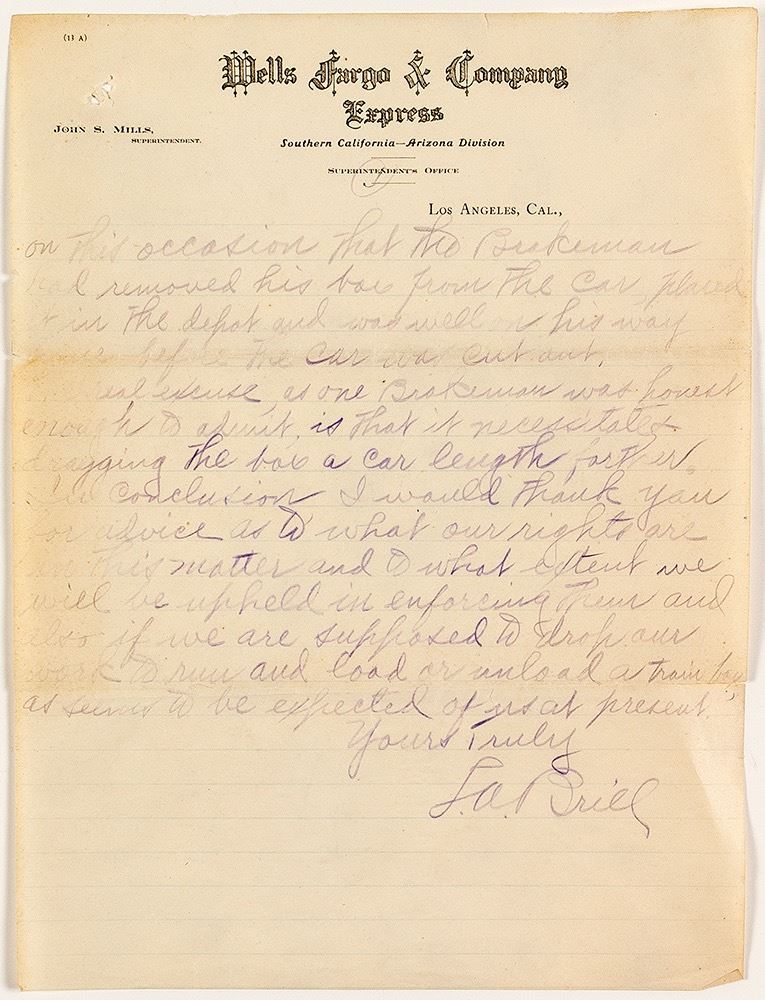 (13 A)
Wells Fargo & Company
Express
JOHN S. MILLS,
SUPERINTENDENT.
Southern California—Arizona Division
SUPERINTENDENT'S OFFICE
LOS ANGELES, CAL.,
on this occasion that the Brakeman
had removed his box from the car, placed
it in the depot and was well on his way
before the car was cut out.
real excuse, as one Brakeman was honest
enough to admit, is that it necessitates
dragging the box a car length farther.
In conclusion I would thank you
for advice as to what our rights are
in this matter and to what extent we
will be upheld in enforcing them and
also if we are supposed to drop our
work to run and load or unload a train box
as seems to be expected of us at present.
Yours Truly
Brill